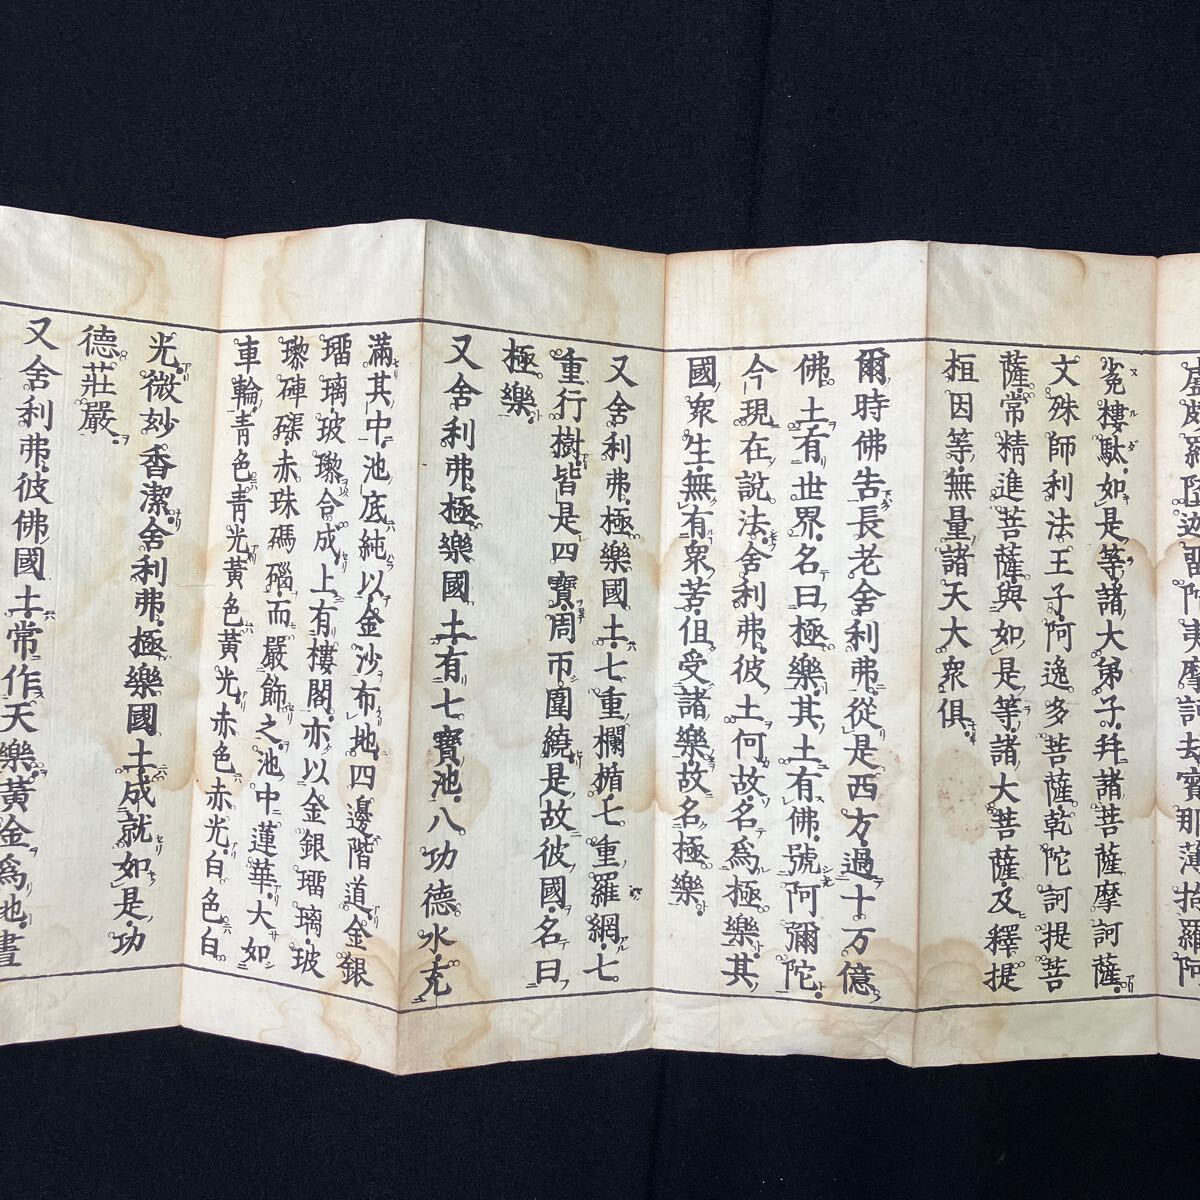 盧頗羅墮迦留陀夷摩訶劫賓那薄拘羅阿
㝹樓馱如是等諸大弟子并諸菩薩摩訶薩
文殊師利法王子阿逸多菩薩乾陀訶提菩
薩常精進菩薩與如是等諸大菩薩及釋提
桓因等無量諸天大衆俱
爾時佛告長老舍利弗從是西方過十万億
佛土有世界名曰極樂其土有佛號阿彌陀
今現在說法舍利弗彼土何故名爲極樂其
國衆生無有衆苦但受諸樂故名極樂
又舍利弗極樂國土七重欄楯七重羅網七
重行樹皆是四寶周帀圍繞是故彼國名曰
極樂
又舍利弗極樂國土有七寶池八功德水充
滿其中池底純以金沙布地四邊階道金銀
瑠璃玻瓈合成上有樓閣亦以金銀瑠璃玻
瓈硨磲赤珠碼碯而嚴飾之池中蓮華大如
車輪靑色靑光黃色黃光赤色赤光白色白
光微妙香潔舍利弗極樂國土成就如是功
德莊嚴
又舍利弗彼佛國土常作天樂黃金爲地晝